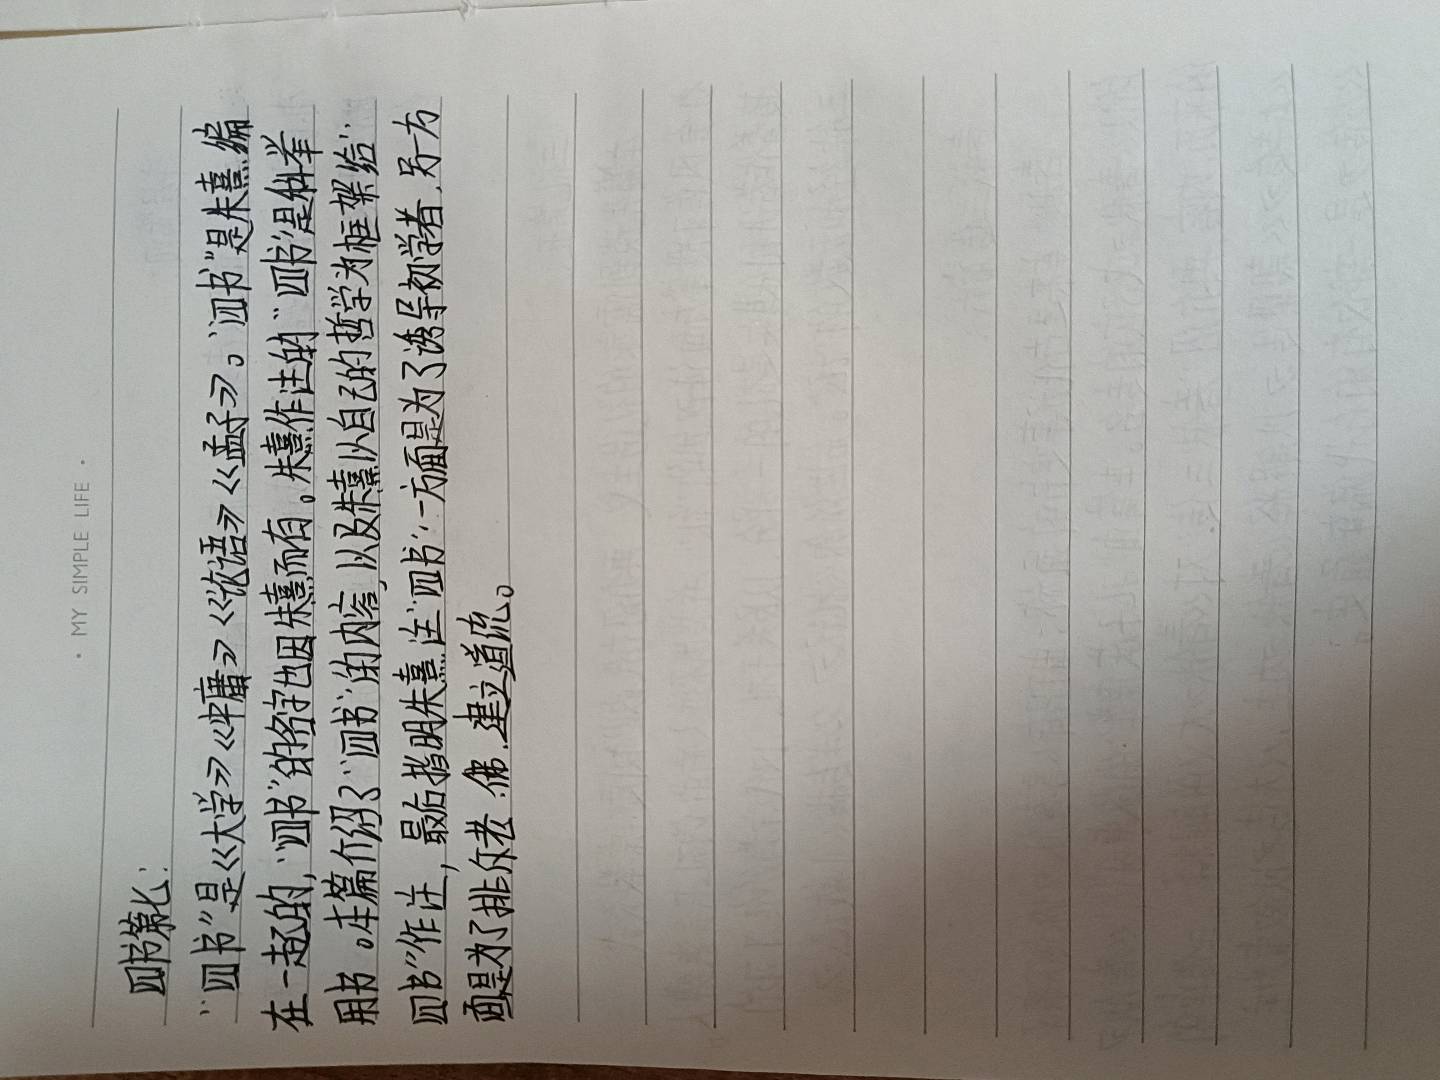 · MY SIMPLE LIFE ·
四书第七：
“四书”是《大学》《中庸》《论语》《孟子》。“四书”是朱熹编
在一起的，“四书”的名字也因朱熹而有。朱熹作注的“四书”是科举
用书。本篇介绍了“四书”的内容，以及朱熹以自己的哲学为框架给“
四书”作注，最后指明朱熹注“四书”，一方面是为了诱导初学者，另一方
面是为了排斥老、佛，建立道流。